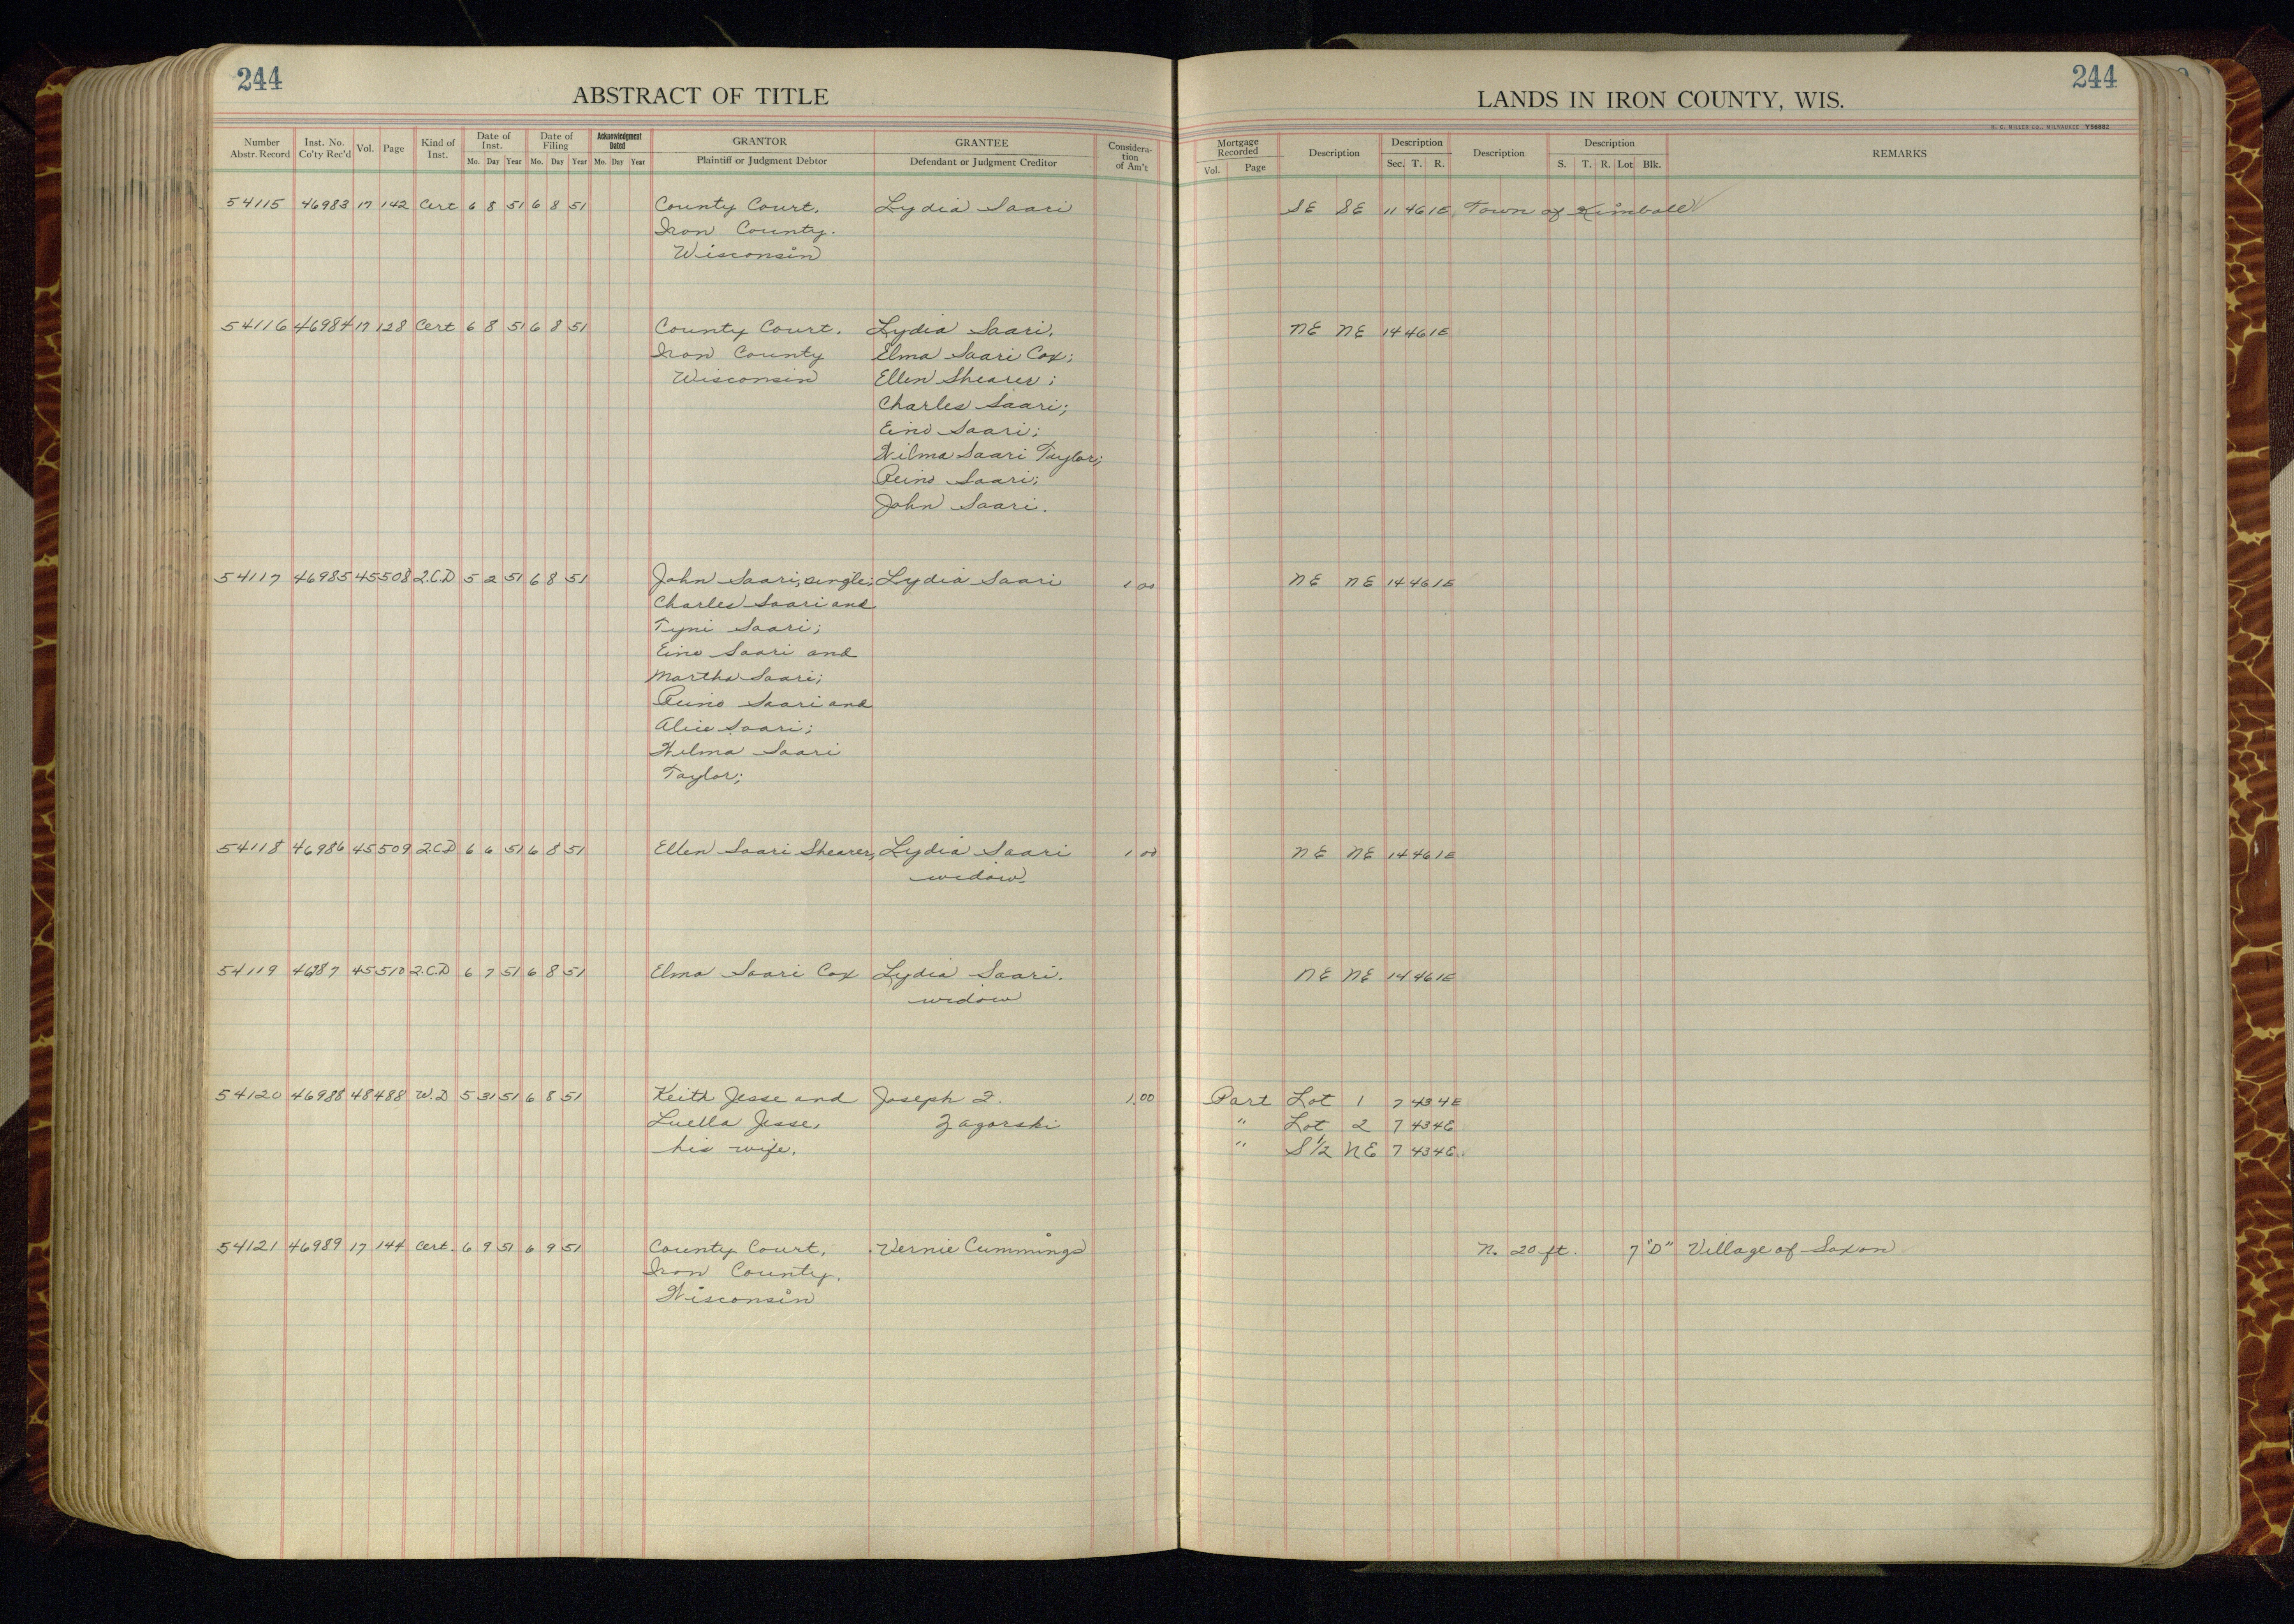 244
ABSTRACT OF TITLE
LANDS IN IRON COUNTY, WIS.
244
H. C. MILLER CO., MILWAUKEE Y56682
Number Abstr. Record Inst. No. Co'ty Rec'd Vol. Page Kind of Inst. Date of Inst. Mo. Day Year Date of Filing Mo. Day Year Acknowledgment Dated Mo. Day Year GRANTOR Plaintiff or Judgment Debtor GRANTEE Defendant or Judgment Creditor Considera-tion of Am't Mortgage Recorded Vol. Page Description Description Sec. T. R. Description Description S. T. R. Lot Blk. REMARKS
54115 46983 17 142 Cert 6 8 51 6 8 51 County Court, Lydia Saari SE SE 11 46 1E Town of Kimball
Iron County.
Wisconsin
54116 46984 17 128 Cert 6 8 51 6 8 51 County Court. Lydia Saari, NE NE 14 46 1E
Iron County Elma Saari Cox;
Wisconsin Ellen Shearer;
Charles Saari;
Eino Saari;
Wilma Saari Taylor;
Reino Saari;
John Saari.
54117 46985 45 508 Q.C.D 5 2 51 6 8 51 John Saari, single; Lydia Saari 1 00 NE NE 14 46 1E
Charles Saari and
Tyni Saari;
Eino Saari and
Martha Saari;
Reino Saari and
Alice Saari;
Wilma Saari
Taylor;
54118 46986 45 509 Q.C.D 6 6 51 6 8 51 Ellen Saari Shearer, Lydia Saari 1 00 NE NE 14 46 1E
widow.
54119 46987 45 510 Q.C.D 6 7 51 6 8 51 Elma Saari Cox Lydia Saari. NE NE 14 46 1E
widow
54120 46988 48 488 W.D 5 31 51 6 8 51 Keith Jesse and Joseph Z. 1.00 Part Lot 1 7 43 4E
Luella Jesse, Zagorski " Lot 2 7 43 4E
his wife. " S 1/2 NE 7 43 4E
54121 46989 17 144 Cert. 6 9 51 6 9 51 County Court, Vernie Cummings N. 20 ft. 7 "D" Village of Saxon
Iron County,
Wisconsin